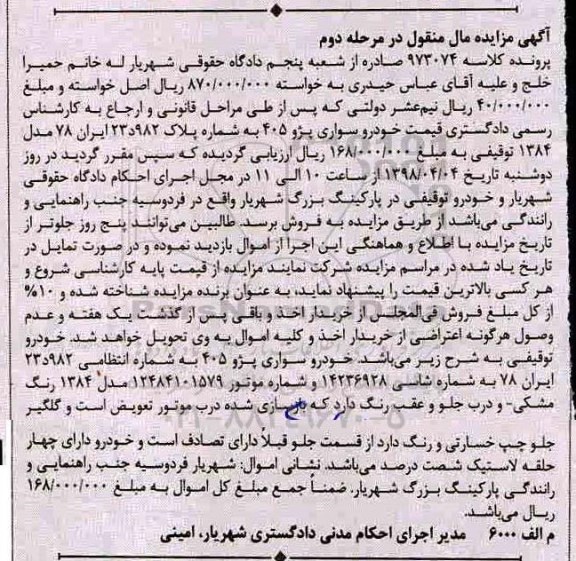 آگهی مزایده مال منقول در مرحله دوم
پرونده کلاسه ۹۷۳۰۷۴ صادره از شعبه پنجم دادگاه حقوقی شهریار لـه خانـم حمیـرا
خلج و علیه آقای عباس حیدری به خواسته ۸۷۰/۰۰۰/۰۰۰ ریـال اصل خواسته و مبلغ
۴۰/۰۰۰/۰۰۰ ریـال نیم‌عشـر دولتـی کـه پـس از طی مراحل قانونی و ارجاع به کارشناس
رسمی دادگستری قیمت خودرو سواری پژو ۴۰۵ به شماره پلاک ۹۸۲د۲۳ ایران ۷۸ مدل
۱۳۸۴ توقیفی به مبلغ ۱۶۸/۰۰۰/۰۰۰ ریال ارزیابی گردیده که سپس مقرر گردید در روز
دوشنبه تاریخ ۱۳۹۸/۰۴/۰۴ از ساعت ۱۰ الی ۱۱ در محل اجرای احکام دادگاه حقوقی
شهریار و خودرو توقیفی در پارکینگ بزرگ شهریار واقع در فردوسیه جنب راهنمایی و
رانندگی می‌باشد از طریق مزایده به فروش برسد. طالبین می‌توانند پنج روز جلوتر از
تاریخ مزایده بـا اطـلاع و هماهنگی این اجرا از اموال بازدید نموده و در صورت تمایل در
تاریخ یاد شده در مراسم مزایده شرکت نمایند مزایده از قیمت پایه کارشناسی شروع و
هر کسی بالاترین قیمت را پیشنهاد نماید، به عنوان برنده مزایده شناخته شده و ۱۰%
از کل مبلغ فروش فی‌المجلس از خریدار اخذ و باقی پـس از گذشـت یـک هفتـه و عدم
وصول هرگونه اعتراضی از خریدار اخذ و کلیه اموال به وی تحویل خواهد شد. خودرو
توقیفی به شرح زیر می‌باشد. خودرو سواری پژو ۴۰۵ به شماره انتظامی ۹۸۲د۲۳
ایران ۷۸ به شماره شاسی ۱۴۲۳۶۹۲۸ و شماره موتور ۱۲۴۸۴۱۰۱۵۷۹ مدل ۱۳۸۴ رنگ
مشکی- و درب جلو و عقب رنگ دارد که بازسازی شده درب موتور تعویض است و گلگیر
جلو چپ خسارتی و رنگ دارد از قسمت جلو قبلاً دارای تصادف است و خودرو دارای چهار
حلقه لاستیک شصت درصد می‌باشد. نشانی اموال: شهریار فردوسیه جنب راهنمایی و
رانندگی پارکینگ بزرگ شهریار. ضمناً جمع مبلغ کل اموال به مبلغ ۱۶۸/۰۰۰/۰۰۰
ریـال می‌باشد.
م الف ۶۰۰۰ مدیر اجرای احکام مدنی دادگستری شهریار، امینی